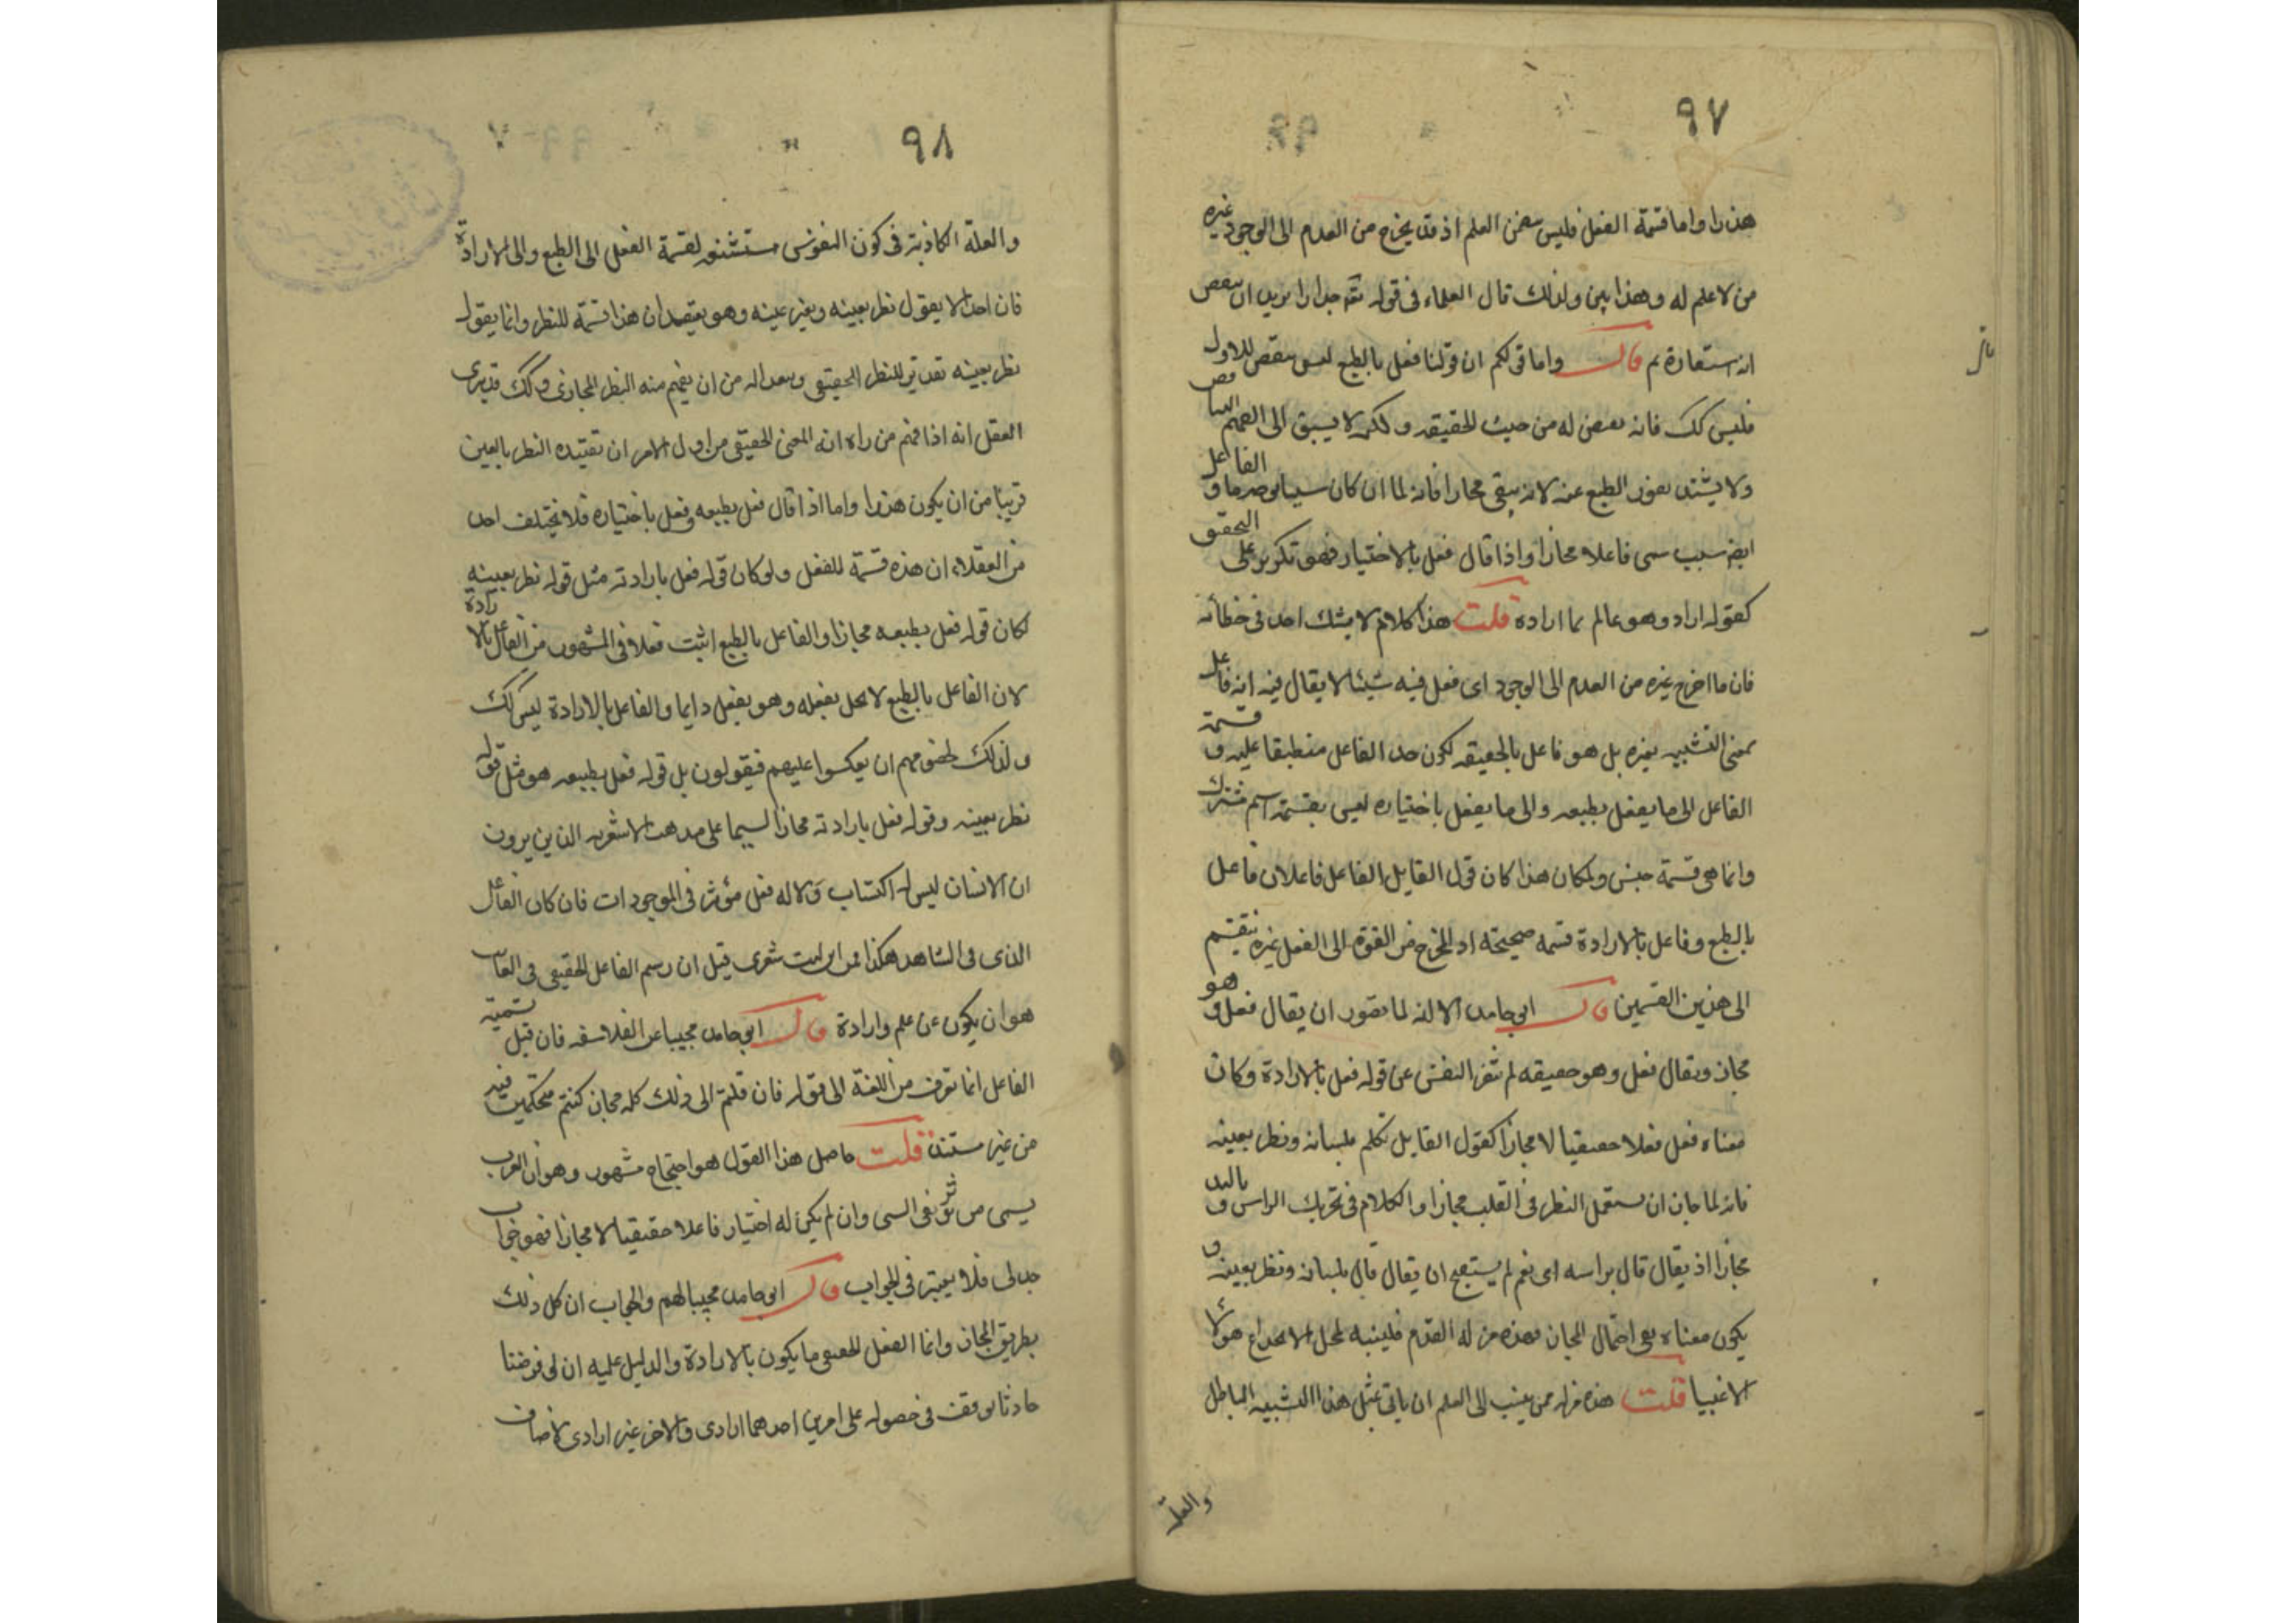 ٩٧
هذرا واما قسمة الفعل فليس تضمن العلم اذ قد يخرج من العدم الى الوجود غيره
من لا علم له وهذا بين ولذلك قال العلماء فى قوله تعه جدارا يريد ان ينقض
انه استعارة ثم قال واما قولكم ان قولنا فعل بالطبع ليس بنقض للاول
فليس كك فانه نقض له من حيث الحقيقه ولكن لا يسبق الى الفهم التناقض
ولا يشتد نفور الطبع عنه لانه يبقى مجازا فانه لما ان كان سببا بوجه ما والفاعل
ايض سبب سمى فاعلا مجازا واذا قال فعل بالاختيار فهو تكرير على التحقيق
كقوله اراد وهو عالم بما اراده قلت هذا كلام لا يشك احد فى خطائه
فان ما اخرج غيره من العدم الى الوجود اى فعل فيه شيئا لا يقال فيه انه فاعل
بمعنى التشبيه بغيره بل هو فاعل بالحقيقه لكون حد الفاعل منطبقا عليه وقسمة
الفاعل الى ما يفعل بطبعه والى ما يفعل باختياره ليس بقسمة اسم مشترك
وانما هى قسمة جنس ولمكان هذا كان قول القايل الفاعل فاعلان فاعل
بالطبع وفاعل بالارادة قسمه صحيحة اذ المخرج من القوة الى الفعل غيره ينقسم
الى هذين القسمين قال ابى حامد الا انه لما تصور ان يقال فعل وهو
مجاز ويقال فعل وهو حقيقه لم تنفر النفس عن قوله فعل بالارادة وكان
معناه فعل فعلا حقيقيا لا مجازا كقول القايل تكلم بلسانه ونظر بعينه
فانه لما جاز ان يستعمل النظر فى القلب مجازا والكلام فى تحريك الراس واليد
مجازا اذ يقال قال براسه اى نعم لم يستقبح ان يقال قال بلسانه ونظر بعينه و
يكون معناه نفى احتمال المجاز فهذه مزلة القدم فلينبه لمحل الانخداع هولاء
الاغبيا قلت هذه مزله ممن ينسب الى العلم ان ياتى بمثل هذا التشبيه الباطل
والعلة
٩٨
والعلة الكاذبة فى كون النفوس مستشنعه لقسمة الفعل الى الطبع والى الارادة
فان احدا لا يقول نظر بعينه وبغير عينه وهو يعتقد ان هذا قسمة للنظر وانما يقول
نظر بعينه تقديرا للنظر الحقيقى وبعدا له من ان يفهم منه النظر المجازى وكك قد يرى
العقل انه اذا فهم من راه انه المعنى الحقيقى من اول الامر ان تقييده النظر بالعين
قريبا من ان يكون هذرا واما اذا قال فعل بطبعه وفعل باختياره فلا يختلف احد
من العقلاء ان هذه قسمة للفعل ولو كان قوله فعل بارادته مثل قوله نظر بعينه
لكان قوله فعل بطبعه مجازا والفاعل بالطبع اثبت فعلا فى المشهور من الفاعل بالارادة
لان الفاعل بالطبع لا يخل بفعله وهو يفعل دايما والفاعل بالارادة ليس كك
ولذلك لخصومهم ان يعكسوا عليهم فيقولون بل قوله فعل بطبعه هو مثل قوله
نظر بعينه وقوله فعل بارادته مجاز لا سيما على مذهب الاشعريه الذين يرون
ان الانسان ليس له اكتساب ولا له فعل مؤثر فى الموجودات فان كان الفاعل
الذى فى الشاهد هكذا فمن اين ليت شعرى قيل ان رسم الفاعل الحقيقى فى الغايب
هو ان يكون عن علم وارادة قال ابى حامد مجيبا عن الفلاسفه فان قيل تسمية
الفاعل انما تعرف من اللغة الى قوله فان قلتم الى ذلك كله مجاز كنتم متحكمين فيه
من غير مستند قلت حاصل هذا القول هو احتجاج مشهور وهو ان العرب
يسمى من يؤثر فى الشى وان لم يكن له اختيار فاعلا حقيقيا لا مجازا فهو جواب
جدلى فلا يعتبر فى الجواب قال ابى حامد مجيبا لهم والجواب ان كل ذلك
بطريق المجاز وانما الفعل الحقيقى ما يكون بالارادة والدليل عليه ان لو فرضنا
حادثا توقف فى حصوله على امرين احدهما ارادى والاخر غير ارادى لاضاف